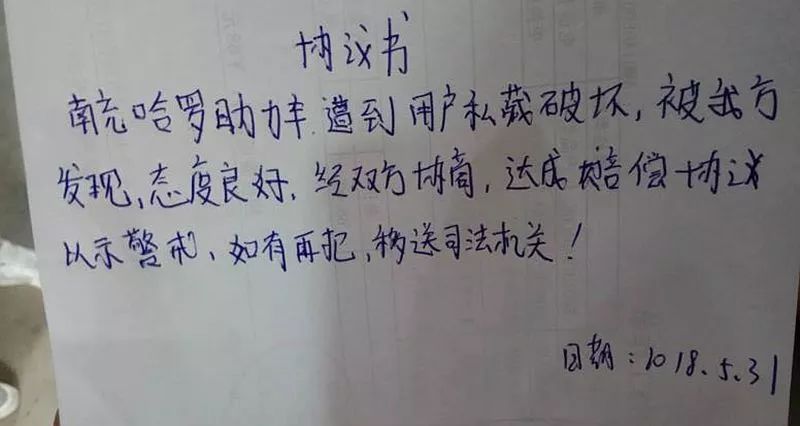 协议书
南充哈罗助力车.遭到用户私藏破坏,被我方
发现,态度良好,经双方协商,达成赔偿协议
以示警戒、如有再犯,移送司法机关!
日期:2018.5.31